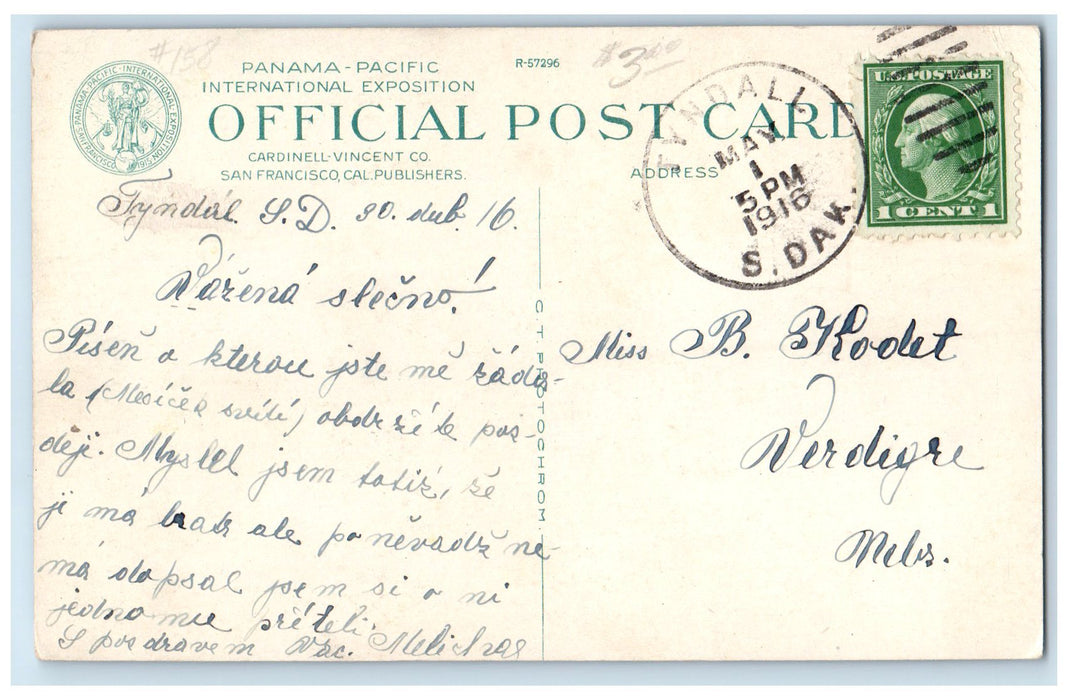 #158
$3.00
PANAMA-PACIFIC
INTERNATIONAL EXPOSITION
R-57296
OFFICIAL POST CARD
CARDINELL-VINCENT CO.
SAN FRANCISCO, CAL. PUBLISHERS.
ADDRESS
PANAMA-PACIFIC-INTERNATIONAL EXPOSITION
SAN FRANCISCO 1915
TYNDALL
MAY
1
5 PM
1916
S. DAK.
U.S. POSTAGE
1 CENT 1
Tyndál S.D. 30. dub. 16.
Vážená slečno!
Píseň o kterou jste mě žáda-
la (Měsíček svítí) obdržíte poz-
ději. Myslel jsem totiž, že
ji má bratr ale poněvadž ne-
má dopsal jsem si o ni
jednomu příteli.
S pozdravem Vác. Melichar
C.T. PHOTOCHROM.
Miss B. Kodet
Verdigre
Nebr.